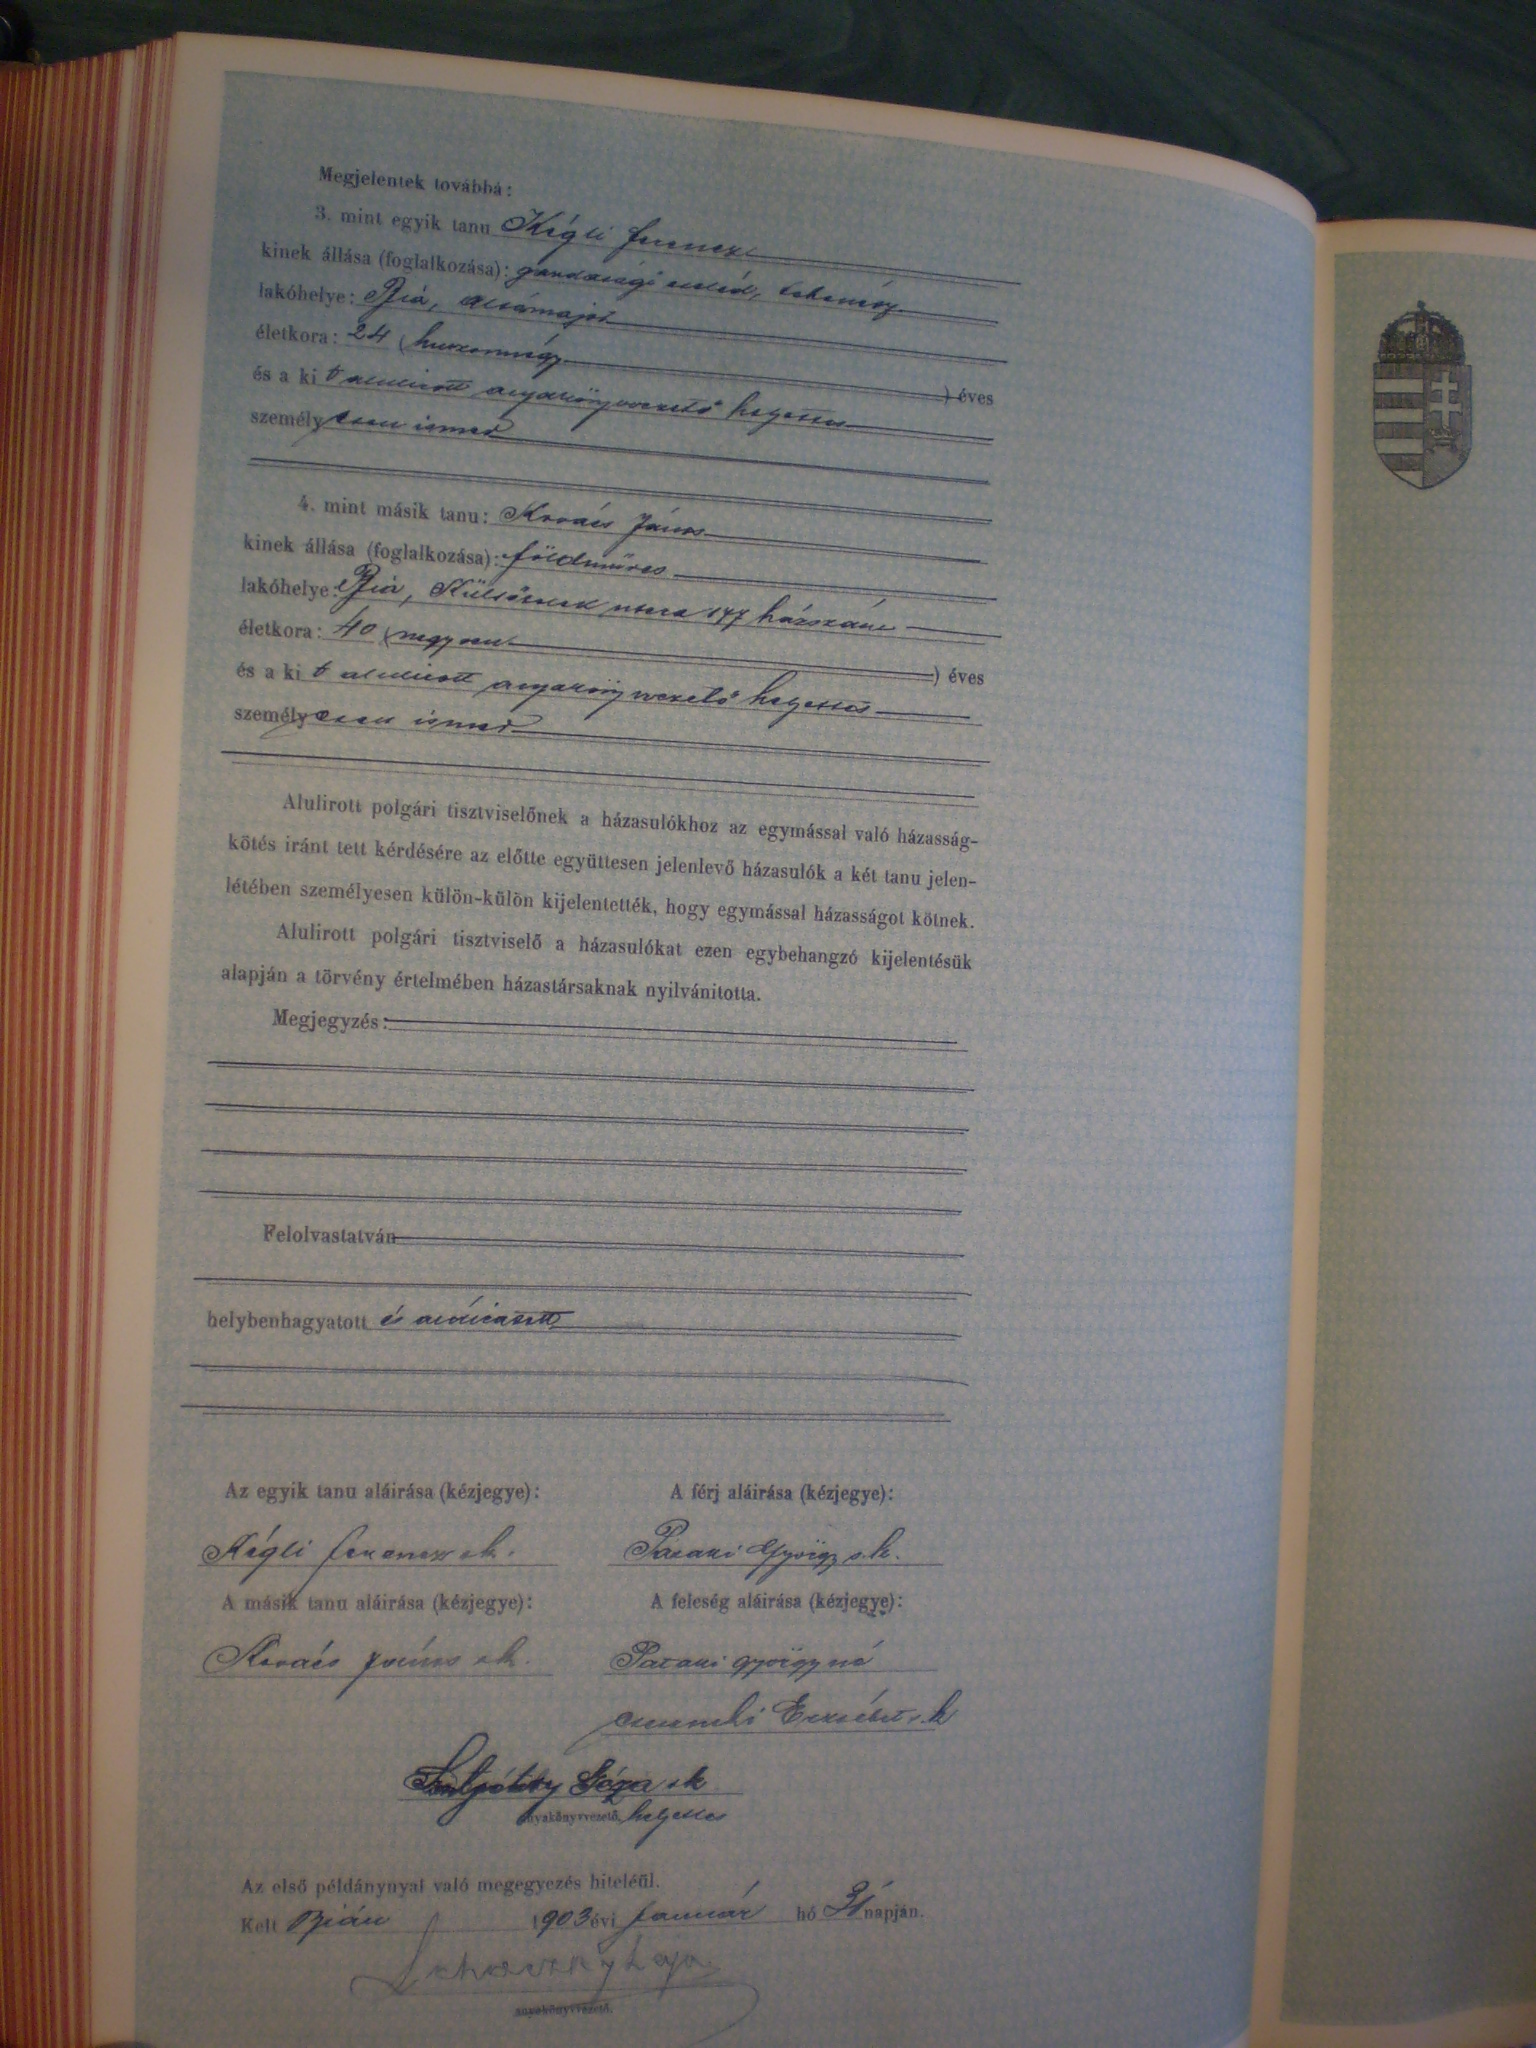 Megjelentek továbbá:
3. mint egyik tanu Kégli Ferencz
kinek állása (foglalkozása): gazdasági cseléd, tehenész
lakóhelye: Biá, alsómajor
életkora: 24 (huszonnégy ) éves
és a ki t alulirott anyakönyvvezető helyettes
személyesen ismer
4. mint másik tanu: Kovács János
kinek állása (foglalkozása): földmüves
lakóhelye: Biá, utcza 147 házszám
életkora: 40 (negyven ) éves
és a ki t alulirott anyakönyvvezető helyettes
személyesen ismer
Alulirott polgári tisztviselőnek a házasulókhoz az egymással való házasság-
kötés iránt tett kérdésére az előtte együttesen jelenlevő házasulók a két tanu jelen-
létében személyesen külön-külön kijelentették, hogy egymással házasságot kötnek.
Alulirott polgári tisztviselő a házasulókat ezen egybehangzó kijelentésük
alapján a törvény értelmében házastársaknak nyilvánitotta.
Megjegyzés:
Felolvastatván
helybenhagyatott és aláiratott
Az egyik tanu aláirása (kézjegye): A férj aláirása (kézjegye):
Kégli Ferencz sk. Pataki György s.k.
A másik tanu aláirása (kézjegye): A feleség aláirása (kézjegye):
Kovács János sk. Pataki Györgyné
Erzsébet s.k
Géza sk
anyakönyvvezető. helyettes
Az első példánynyal való megegyezés hiteléül.
Kelt Bián 1903 évi Január hó 31 napján.
anyakönyvvezető.